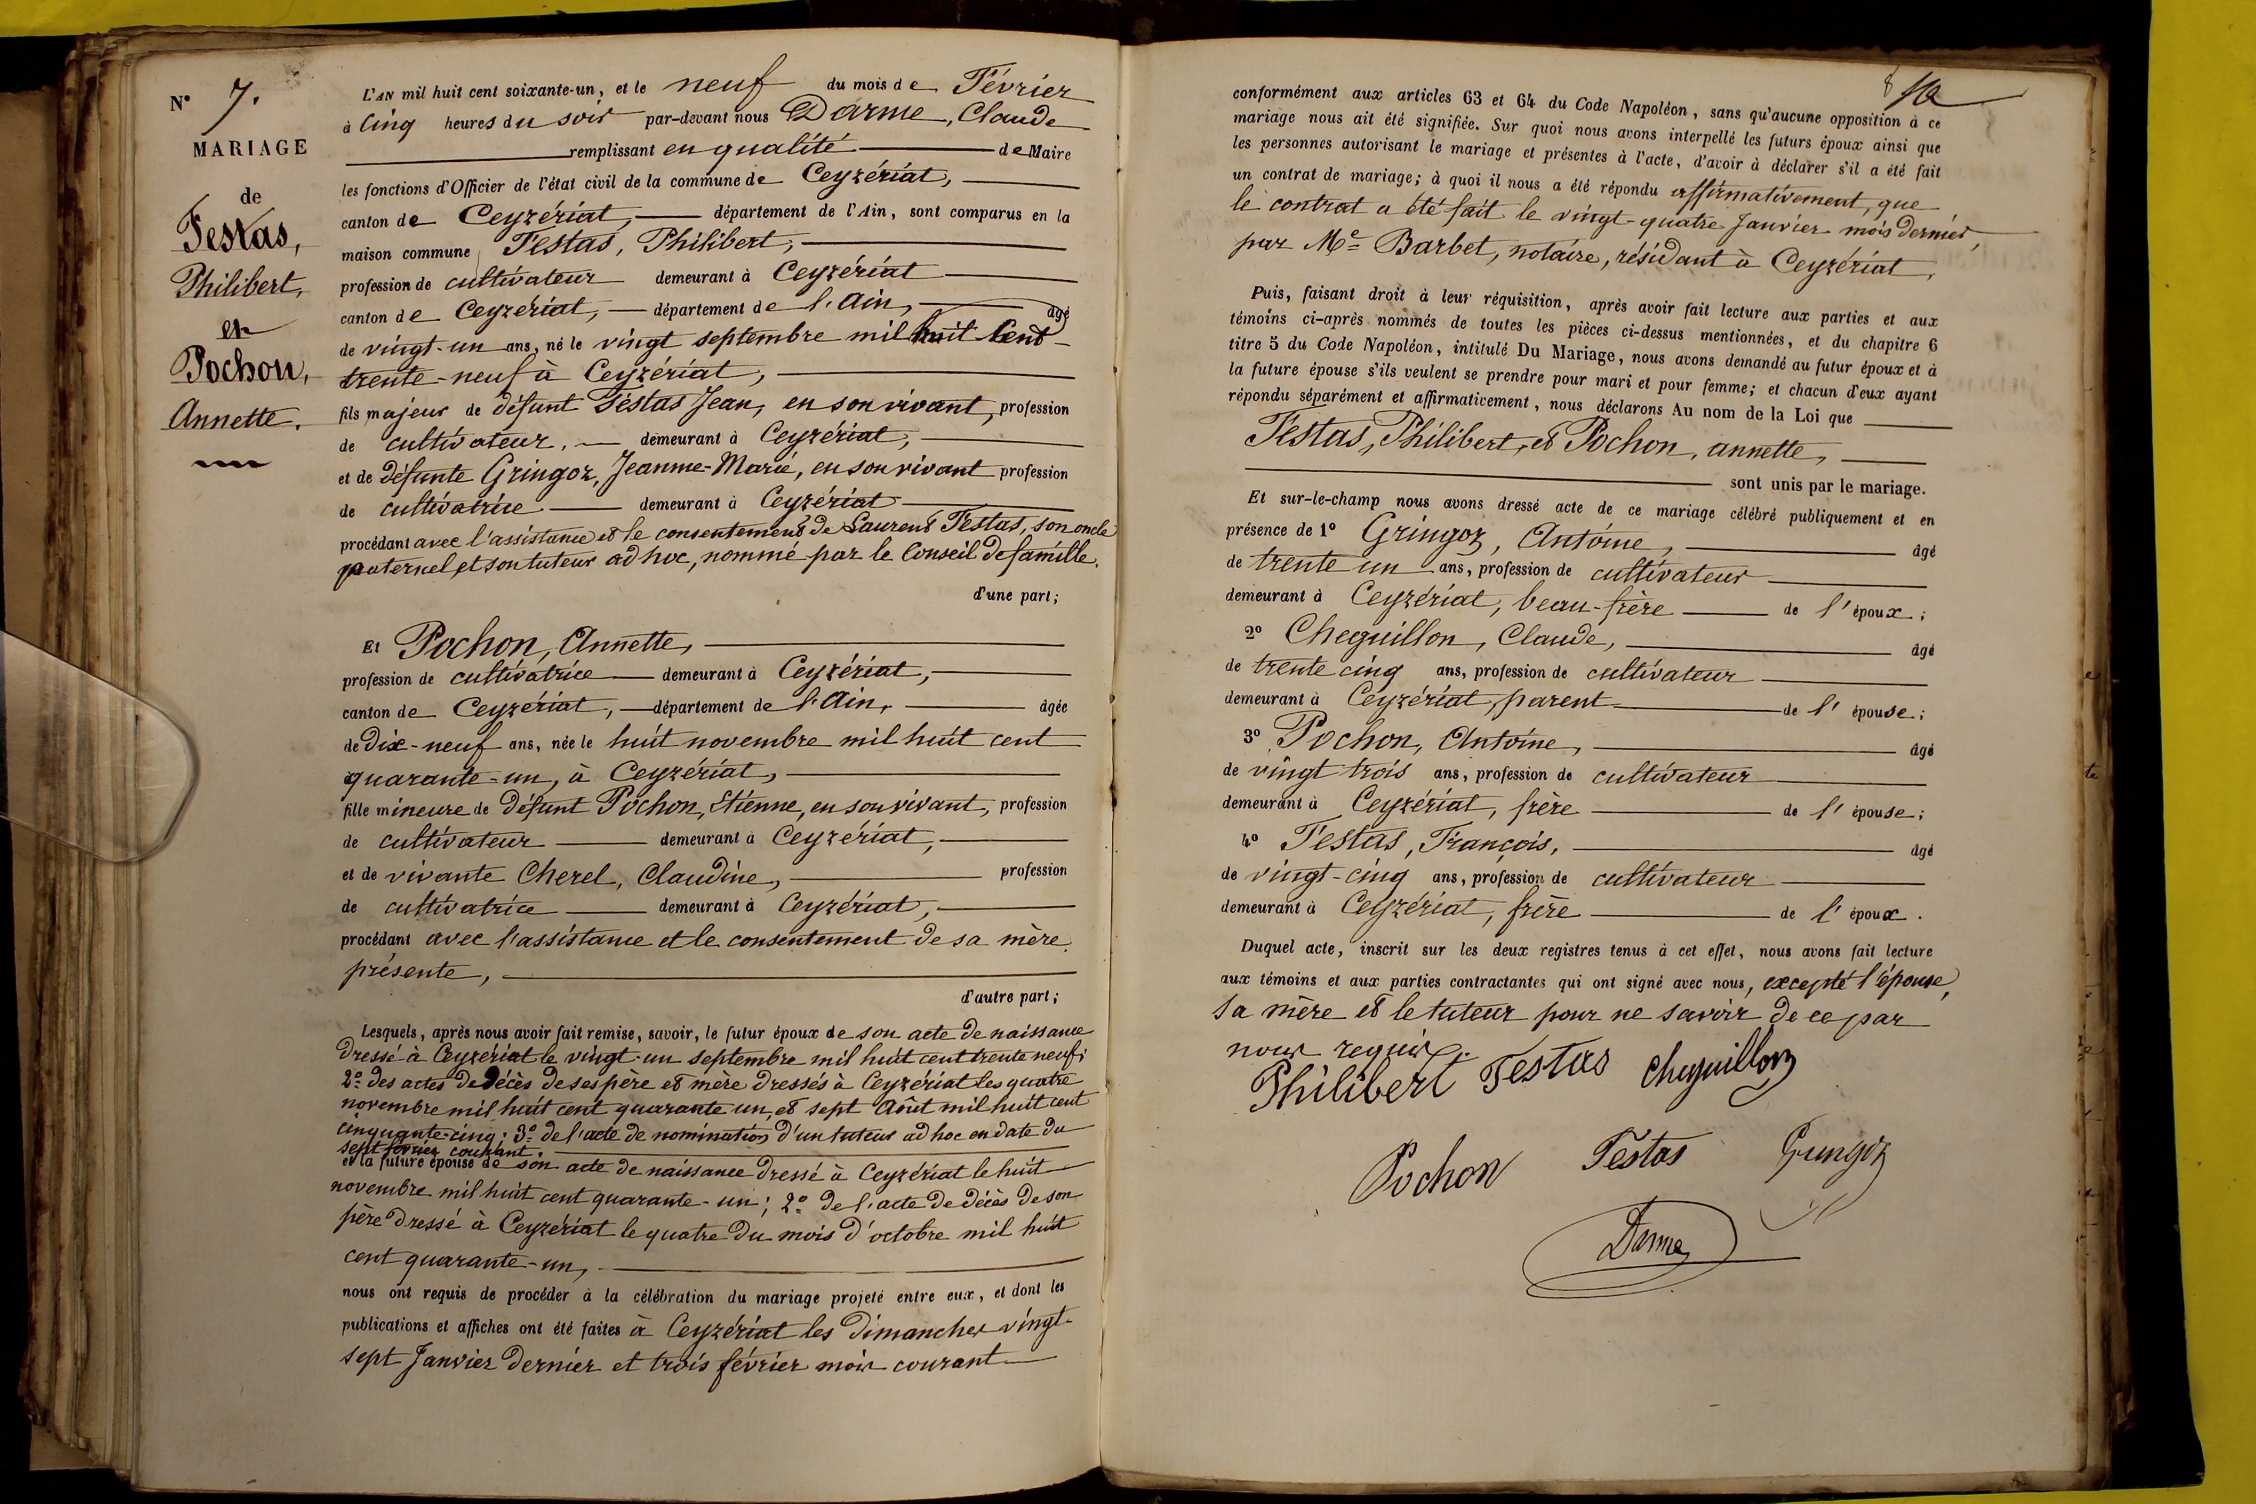 N° 7.
MARIAGE
de
Festas,
Philibert,
et
Pochon,
Annette.
L'AN mil huit cent soixante-un, et le neuf du mois de Février
à cinq heures du soir par-devant nous Darme, Claude
remplissant en qualité de Maire
les fonctions d'Officier de l'état civil de la commune de Ceyzériat,
canton de Ceyzériat, département de l'Ain, sont comparus en la
maison commune Festas, Philibert,
profession de cultivateur demeurant à Ceyzériat
canton de Ceyzériat, département de l'Ain, âgé
de vingt-un ans, né le vingt septembre mil huit cent
trente-neuf à Ceyzériat,
fils majeur de défunt Festas Jean, en son vivant, profession
de cultivateur, demeurant à Ceyzériat,
et de défunte Gringoz, Jeanne-Marie, en son vivant profession
de cultivatrice demeurant à Ceyzériat
procédant avec l'assistance et le consentement de Laurent Festas, son oncle
paternel et son tuteur ad hoc, nommé par le Conseil de famille.
d'une part;
Et Pochon, Annette,
profession de cultivatrice demeurant à Ceyzériat,
canton de Ceyzériat, département de l'Ain, âgée
de Dix-neuf ans, née le huit novembre mil huit cent
quarante-un, à Ceyzériat,
fille mineure de défunt Pochon, Etienne, en son vivant, profession
de cultivateur demeurant à Ceyzériat,
et de vivante Cherel, Claudine, profession
de cultivatrice demeurant à Ceyzériat,
procédant avec l'assistance et le consentement de sa mère
présente,
d'autre part;
Lesquels, après nous avoir fait remise, savoir, le futur époux de son acte de naissance
dressé à Ceyzériat le vingt-un septembre mil huit cent trente neuf;
2° des actes de décès de ses père et mère dressés à Ceyzériat les quatre
novembre mil huit cent quarante un, et sept Août mil huit cent
cinquante-cinq; 3° de l'acte de nomination d'un tuteur ad hoc en date du
sept février courant.
et la future épouse de son acte de naissance dressé à Ceyzériat le huit
novembre mil huit cent quarante-un; 2° de l'acte de décès de son
père dressé à Ceyzériat le quatre du mois d'octobre mil huit
cent quarante-un,
nous ont requis de procéder à la célébration du mariage projeté entre eux, et dont les
publications et affiches ont été faites à Ceyzériat les dimanches vingt-
sept Janvier dernier et trois février mois courant
conformément aux articles 63 et 64 du Code Napoléon, sans qu'aucune opposition à ce
mariage nous ait été signifiée. Sur quoi nous avons interpellé les futurs époux ainsi que
les personnes autorisant le mariage et présentes à l'acte, d'avoir à déclarer s'il a été fait
un contrat de mariage; à quoi il nous a été répondu affirmativement, que
le contrat a été fait le vingt-quatre Janvier mois dernier,
par Me Barbet, notaire, résidant à Ceyzériat,
Puis, faisant droit à leur réquisition, après avoir fait lecture aux parties et aux
témoins ci-après nommés de toutes les pièces ci-dessus mentionnées, et du chapitre 6
titre 5 du Code Napoléon, intitulé Du Mariage, nous avons demandé au futur époux et à
la future épouse s'ils veulent se prendre pour mari et pour femme; et chacun d'eux ayant
répondu séparément et affirmativement, nous déclarons Au nom de la Loi que
Festas, Philibert, et Pochon, annette,
sont unis par le mariage.
Et sur-le-champ nous avons dressé acte de ce mariage célébré publiquement et en
présence de 1° Gringoz, Antoine, âgé
de trente un ans, profession de cultivateur
demeurant à Ceyzériat, beau-frère de l'époux;
2° Cheguillon, Claude, âgé
de trente cinq ans, profession de cultivateur
demeurant à Ceyzériat, parent de l'épouse;
3° Pochon, Antoine, âgé
de vingt trois ans, profession de cultivateur
demeurant à Ceyzériat, frère de l'épouse;
4° Festas, François, âgé
de vingt-cinq ans, profession de cultivateur
demeurant à Ceyzériat, frère de l'époux.
Duquel acte, inscrit sur les deux registres tenus à cet effet, nous avons fait lecture
aux témoins et aux parties contractantes qui ont signé avec nous, excepté l'épouse,
sa mère et le tuteur pour ne savoir de ce par
nous requis.
Philibert Festas Cheguillon
Pochon Festas Gringoz
Darme